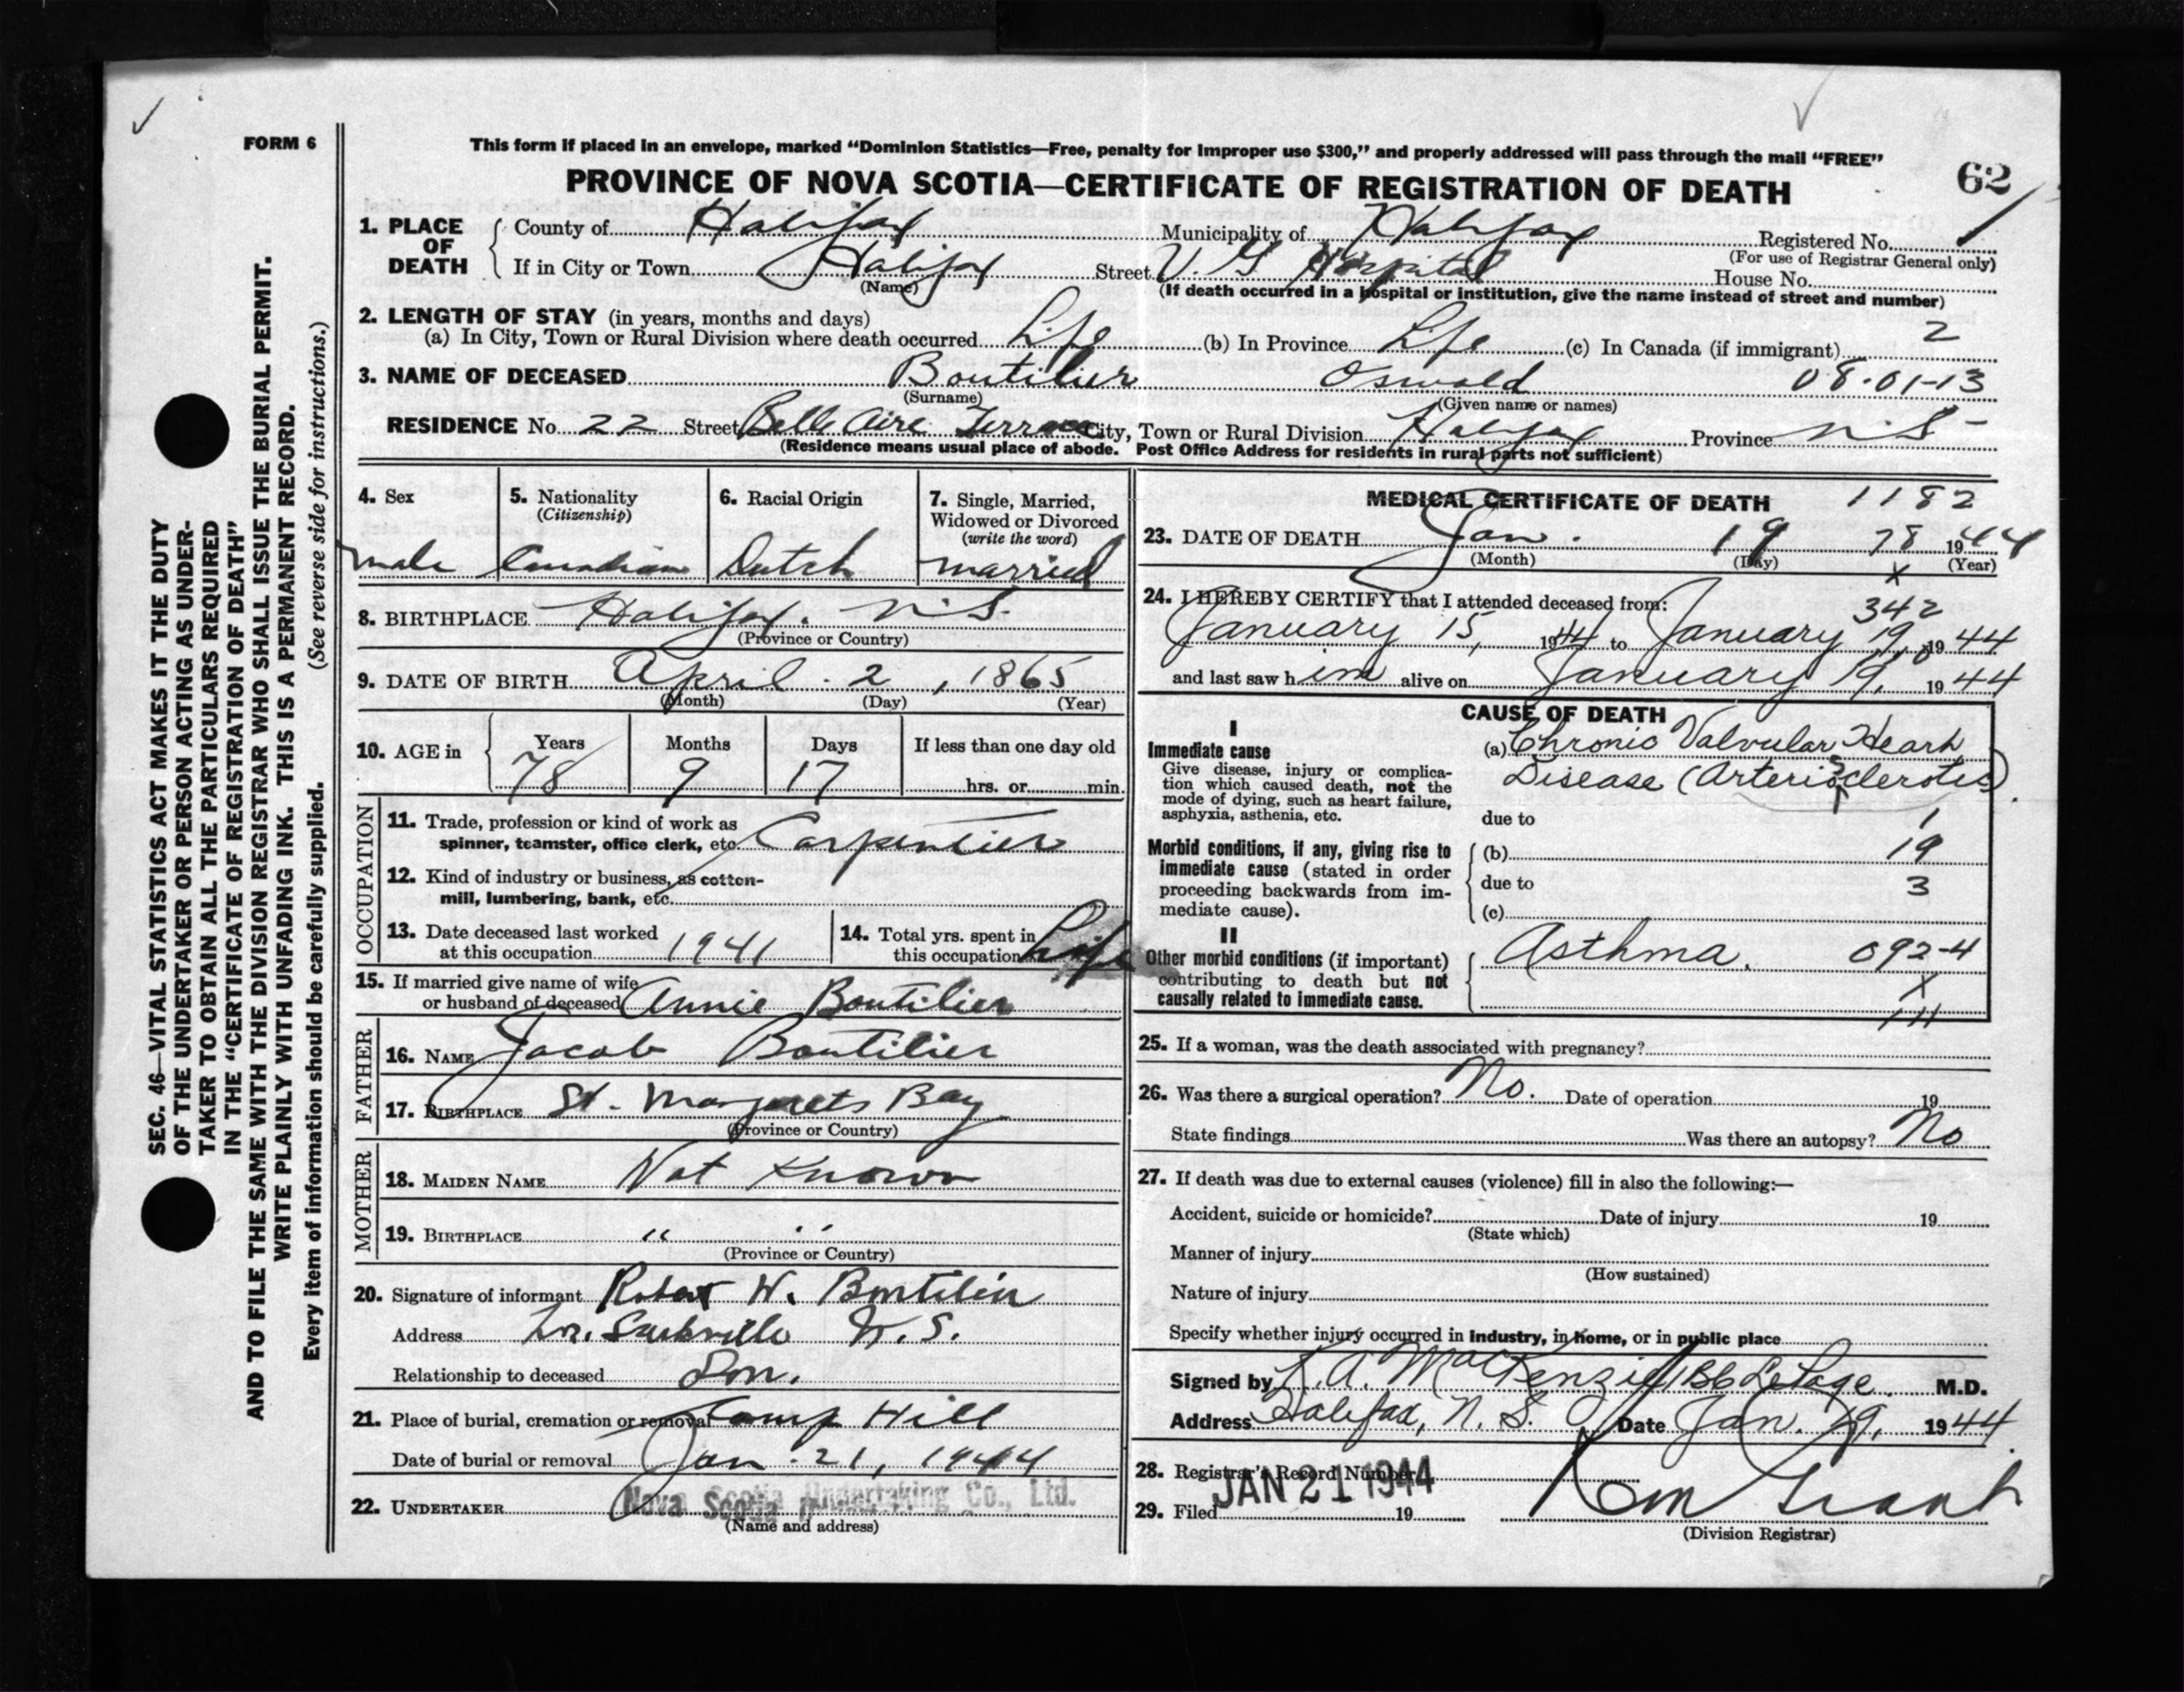 FORM 6
This form if placed in an envelope, marked “Dominion Statistics—Free, penalty for improper use $300,” and properly addressed will pass through the mail “FREE”
62
PROVINCE OF NOVA SCOTIA—CERTIFICATE OF REGISTRATION OF DEATH
1. PLACE OF DEATH
County of Halifax Municipality of Halifax Registered No.
(For use of Registrar General only)
If in City or Town Halifax Street V. G Hospital House No.
(Name) (If death occurred in a hospital or institution, give the name instead of street and number)
2. LENGTH OF STAY (in years, months and days)
(a) In City, Town or Rural Division where death occurred Life (b) In Province Life (c) In Canada (if immigrant) 2
3. NAME OF DECEASED Boutilier Oswald 08-01-13
(Surname) (Given name or names)
RESIDENCE No. 22 Street Belle Aire Terrace City, Town or Rural Division Halifax Province N.S-
(Residence means usual place of abode. Post Office Address for residents in rural parts not sufficient)
4. Sex
male
5. Nationality
(Citizenship)
Canadian
6. Racial Origin
Dutch
7. Single, Married,
Widowed or Divorced
(write the word)
married
8. BIRTHPLACE Halifax. N.S.
(Province or Country)
9. DATE OF BIRTH April 2, 1865
(Month) (Day) (Year)
10. AGE in Years Months Days If less than one day old
78 9 17 hrs. or min.
OCCUPATION
11. Trade, profession or kind of work as
spinner, teamster, office clerk, etc. Carpentier
12. Kind of industry or business, as cotton-
mill, lumbering, bank, etc.
13. Date deceased last worked
at this occupation 1941
14. Total yrs. spent in
this occupation Life
15. If married give name of wife
or husband of deceased Annie Boutilier
FATHER
16. NAME Jacob Boutilier
17. BIRTHPLACE St. Margarets Bay
(Province or Country)
MOTHER
18. MAIDEN NAME Not Known
19. BIRTHPLACE " "
(Province or Country)
20. Signature of informant Robert W. Boutilier
Address Lr. Sackville N.S.
Relationship to deceased Son.
21. Place of burial, cremation or removal Camp Hill
Date of burial or removal Jan. 21, 1944
22. UNDERTAKER Nova Scotia Undertaking Co., Ltd.
(Name and address)
MEDICAL CERTIFICATE OF DEATH 1182
23. DATE OF DEATH Jan. 19 78 1944
(Month) (Day) (Year)
x
24. I HEREBY CERTIFY that I attended deceased from:
342
January 15, 1944 to January 19, 1944
and last saw him alive on January 19, 1944
CAUSE OF DEATH
I
Immediate cause
Give disease, injury or complica-
tion which caused death, not the
mode of dying, such as heart failure,
asphyxia, asthenia, etc.
(a) Chronic Valvular Heart
Disease (Arteriosclerotic)
due to 1
Morbid conditions, if any, giving rise to
immediate cause (stated in order
proceeding backwards from im-
mediate cause).
(b) 19
due to 3
(c)
II
Other morbid conditions (if important)
contributing to death but not
causally related to immediate cause.
Asthma. 092-4
x
25. If a woman, was the death associated with pregnancy?
26. Was there a surgical operation? No. Date of operation 19
State findings Was there an autopsy? No
27. If death was due to external causes (violence) fill in also the following:—
Accident, suicide or homicide? Date of injury 19
(State which)
Manner of injury
(How sustained)
Nature of injury
Specify whether injury occurred in industry, in home, or in public place
Signed by K. A. MacKenzie / BB LePage. M.D.
Address Halifax, N. S. Date Jan. 19, 1944
28. Registrar's Record Number
29. Filed JAN 21 1944 19
(Division Registrar)
SEC. 46—VITAL STATISTICS ACT MAKES IT THE DUTY
OF THE UNDERTAKER OR PERSON ACTING AS UNDER-
TAKER TO OBTAIN ALL THE PARTICULARS REQUIRED
IN THE “CERTIFICATE OF REGISTRATION OF DEATH”
AND TO FILE THE SAME WITH THE DIVISION REGISTRAR WHO SHALL ISSUE THE BURIAL PERMIT.
WRITE PLAINLY WITH UNFADING INK. THIS IS A PERMANENT RECORD.
Every item of information should be carefully supplied. (See reverse side for instructions.)